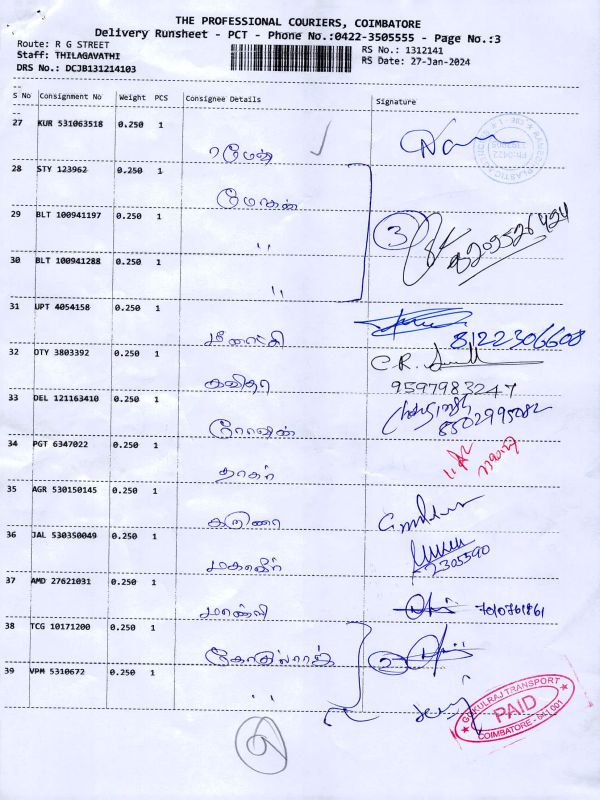 THE PROFESSIONAL COURIERS, COIMBATORE
Delivery Runsheet - PCT - Phone No.:0422-3505555 - Page No.:3
Route: R G STREET
RS No.: 1312141
Staff: THILAGAVATHI
RS Date: 27-Jan-2024
DRS No.: DCJB131214103
S No Consignment No Weight PCS Consignee Details Signature
27 KUR 531063518 0.250 1
ரமேஷ்
28 STY 123962 0.250 1
மோகன்
29 BLT 100941197 0.250 1
"
3
8209526424
30 BLT 100941288 0.250 1
"
31 UPT 4054158 0.250 1
மீனாட்சி
8122306608
32 DTY 3803392 0.250 1
C.R.
கவிதா
9597983247
33 DEL 121163410 0.250 1
8502995082
34 PGT 6347022 0.250 1
தாகர்
35 AGR 530150145 0.250 1
கரிணா
36 JAL 530350049 0.250 1
மகாவீர்
37 AMD 27621031 0.250 1
38 TCG 10171200 0.250 1
2
39 VPM 5310672 0.250 1
"
GOKULRAJ TRANSPORT
PAID
COIMBATORE - 641 001